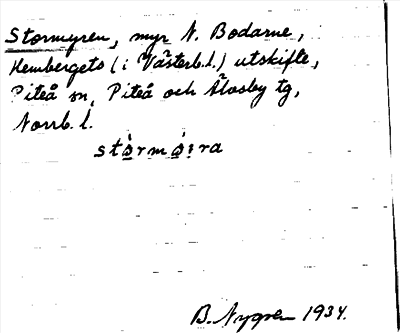 Stormyren, myr N. Bodarne,
Hembergets (i Västerb.l.) utskifte,
Piteå sn, Piteå och Älvsby tg,
Norrb. l.
stòrmǿ:ra
B. Nygren 1934.